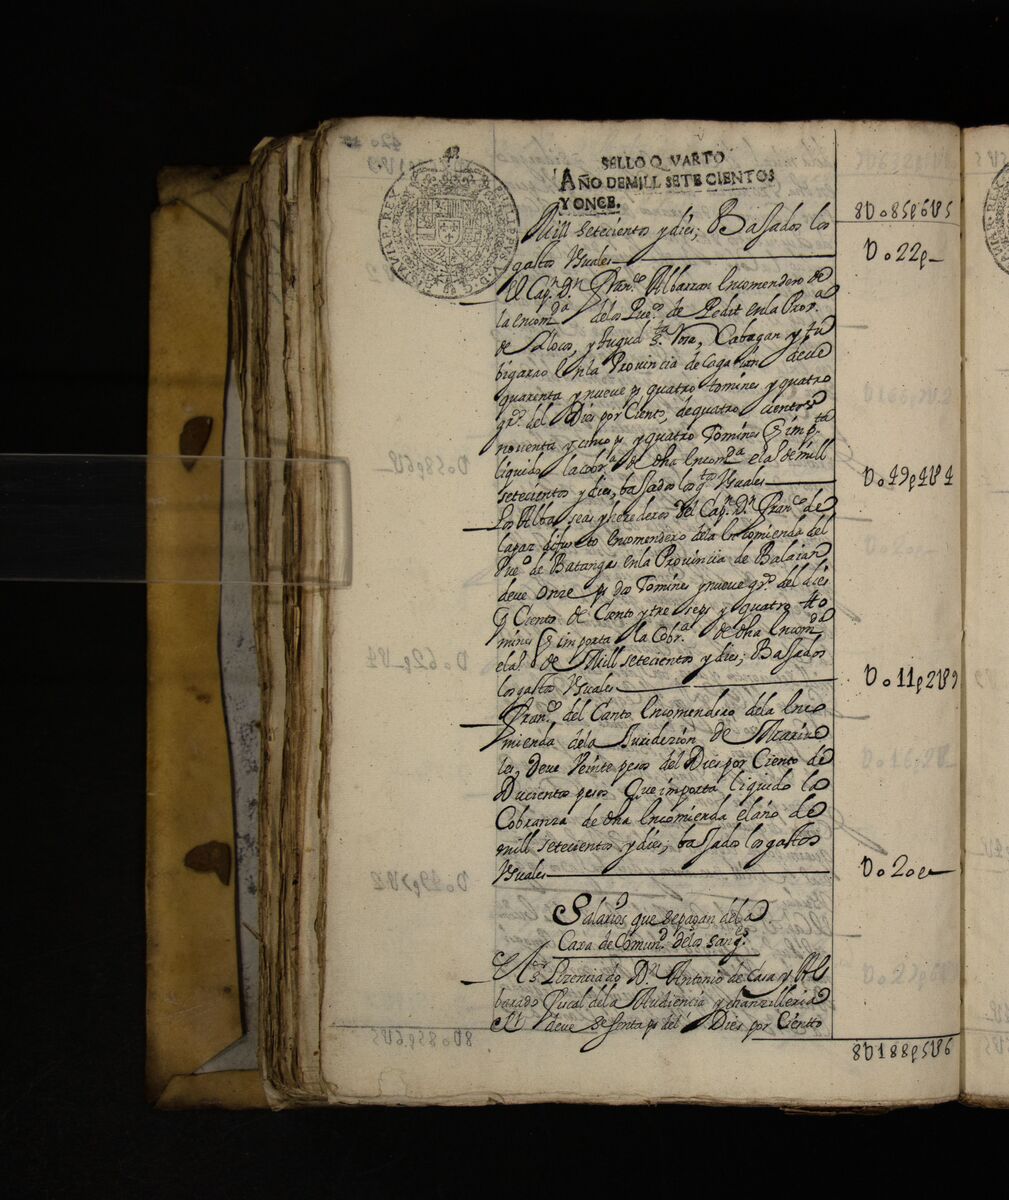 SELLO QVARTO
AÑO DE MILL SETECIENTOS
Y ONCE.
8U085p6U5
Mill setecientos y dies; Bajados los
gastos Usuales
U022p
El Capn Dn Franco Albarran Encomendero de
la encomda de los Pueos de Pedit en la Prova
de Ylocos, y Tugud Sta Nra, Cabagan y tu
bigarao En la Provincia de Cagaian deve
quarenta y nueve ps quatro tomines y quatro
gros del Dies por Ciento, de quatro cientos
noventa y cinco ps y quatro Tomines q impta
liquido la cobra de dha Encomda el aº de mill
setecientos y dies, bajados los gtos Usuales
U049p4U4
Los Albaseas y herederos del Capn Dn Franco de
lapaz difunto Encomendero dela Encomienda del
Pueo de Batangas en la Provincia de Balaian
deve Onze ps dos Tomines y nueve gros del dies
p Ciento de Ciento y tre seps y quatro to
mines q importa la Cobra de dha Encomda
el aº de Mill setecientos y dies; Bajados
los gastos Usuales
U011p2U9
Frano del Canto Encomendero dela Enco
mienda dela Juridizion de Mariue
les, deve Veinte pesos del Dies por Ciento de
Ducientos pesos Que importa liquido la
Cobranza de dha Encomienda el año de
mill setecientos y dies, bajados los gastos
Usuales
U020p
Salarios que se pagan dela
Caxa de Comund delos sangs
Al Sr Lizenciado Dn Antonio de Casa y Al
barado Fiscal dela Audiencia y chanzilleria
Rl deve Sesenta ps del Dies por Ciento
8U188p5U6